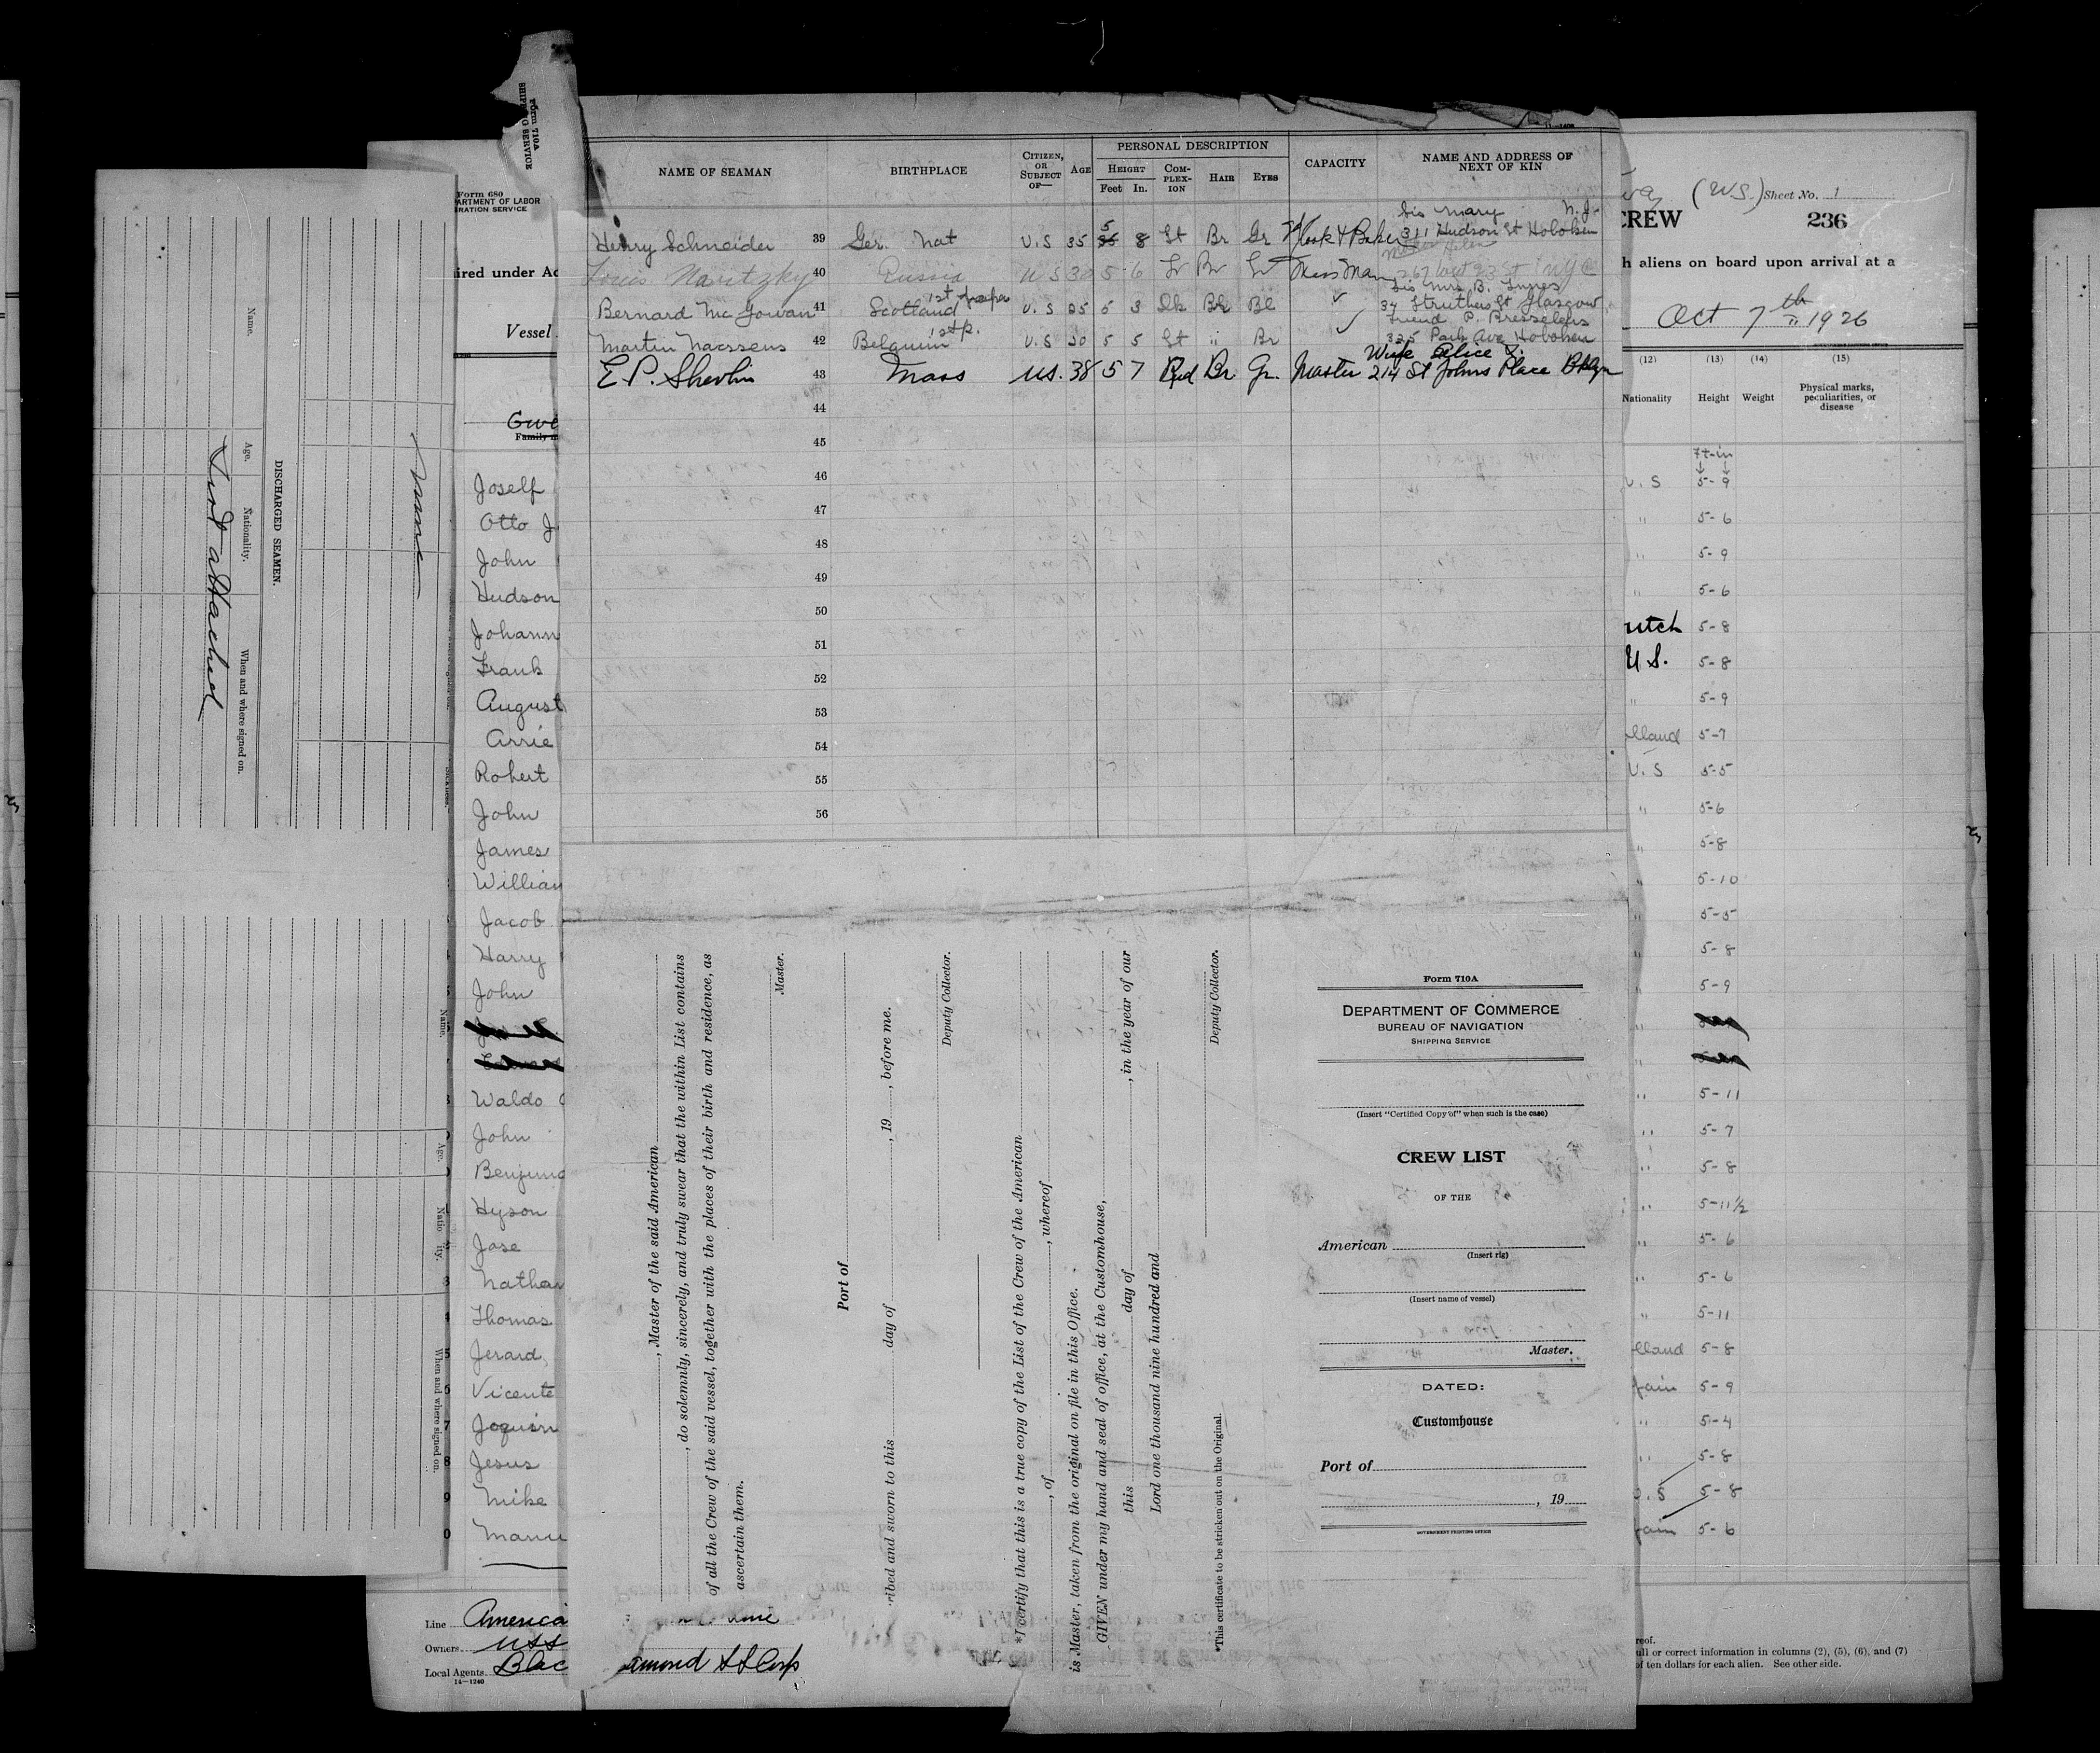 Form 710A
SHIPPING SERVICE
NAME OF SEAMAN
BIRTHPLACE
CITIZEN, OR SUBJECT OF—
AGE
PERSONAL DESCRIPTION
HEIGHT
Feet In.
COM-PLEX-ION
HAIR
EYES
CAPACITY
NAME AND ADDRESS OF NEXT OF KIN
Sis Mary N.J.
Henry Schneider 39 Ger. Nat U.S 35 5 8 Lt Br Gr Cook & Baker 311 Hudson St Hoboken
Louis 40 Russia U S 30 5 6 Lt Br Mess Man
Sis Mrs B. Innes
Bernard Mc Gowan 41 Scotland 1st papers U.S 25 5 3 Dk Br Bl 34 Struthers St Glasgow
Friend P.
Martin Naessens 42 Belguim 1st p. U.S 30 5 5 Lt " Br 325 Park Ave Hoboken
Wife Alice
E. P. Shevlin 43 Mass US. 38 5 7 Rud Br Gr. Master 214 St Johns Place Bklyn
44
45
46
47
48
49
50
51
52
53
54
55
56
, Master of the said American
, do solemnly, sincerely, and truly swear that the within List contains
of all the Crew of the said vessel, together with the places of their birth and residence, as
ascertain them.
Master.
Port of
ribed and sworn to this day of , 19 , before me.
Deputy Collector.
*I certify that this is a true copy of the List of the Crew of the American
, of , whereof
is Master, taken from the original on file in this Office.
GIVEN under my hand and seal of office, at the Customhouse,
this day of , in the year of our
Lord one thousand nine hundred and
Deputy Collector.
*This certificate to be stricken out on the Original.
Form 710A
DEPARTMENT OF COMMERCE
BUREAU OF NAVIGATION
SHIPPING SERVICE
(Insert "Certified Copy of" when such is the case)
CREW LIST
OF THE
American
(Insert rig)
(Insert name of vessel)
Master.
DATED:
Customhouse
Port of
, 19
GOVERNMENT PRINTING OFFICE
DISCHARGED SEAMEN.
Name.
Age.
Nationality.
When and where signed on.
List attached
none
Name.
Age.
Natio ity.
When and where signed on.
Form 680
ARTMENT OF LABOR
RATION SERVICE
ired under Ac
Vessel
Family n
Joself
Otto J
John
Hudson
Johann
Frank
August
Arrie
Robert
John
James
William
Jacob
Harry
John
Waldo
John
Benjamin
Hyson
Jose
Nathan
Thomas
Jerard
Vicente
Joquin
Jesus
Mike
Manu
Line America
Owners USS
Local Agents Blac amond SS Corp
14—1240
(US.) Sheet No. 1
CREW 236
h aliens on board upon arrival at a
Oct 7th 1926
(12) (13) (14) (15)
Nationality Height Weight Physical marks, peculiarities, or disease
ft-in
U.S 5-9
" 5-6
" 5-9
" 5-6
utch 5-8
U S. 5-8
" 5-9
lland 5-7
U.S 5-5
" 5-6
" 5-8
" 5-10
" 5-5
" 5-8
" 5-9
" 5-11
" 5-7
" 5-8
" 5-11½
" 5-6
" 5-6
" 5-11
lland 5-8
pain 5-9
" 5-4
" 5-8
U.S 5-8
pain 5-6
reof.
ull or correct information in columns (2), (5), (6), and (7)
of ten dollars for each alien. See other side.